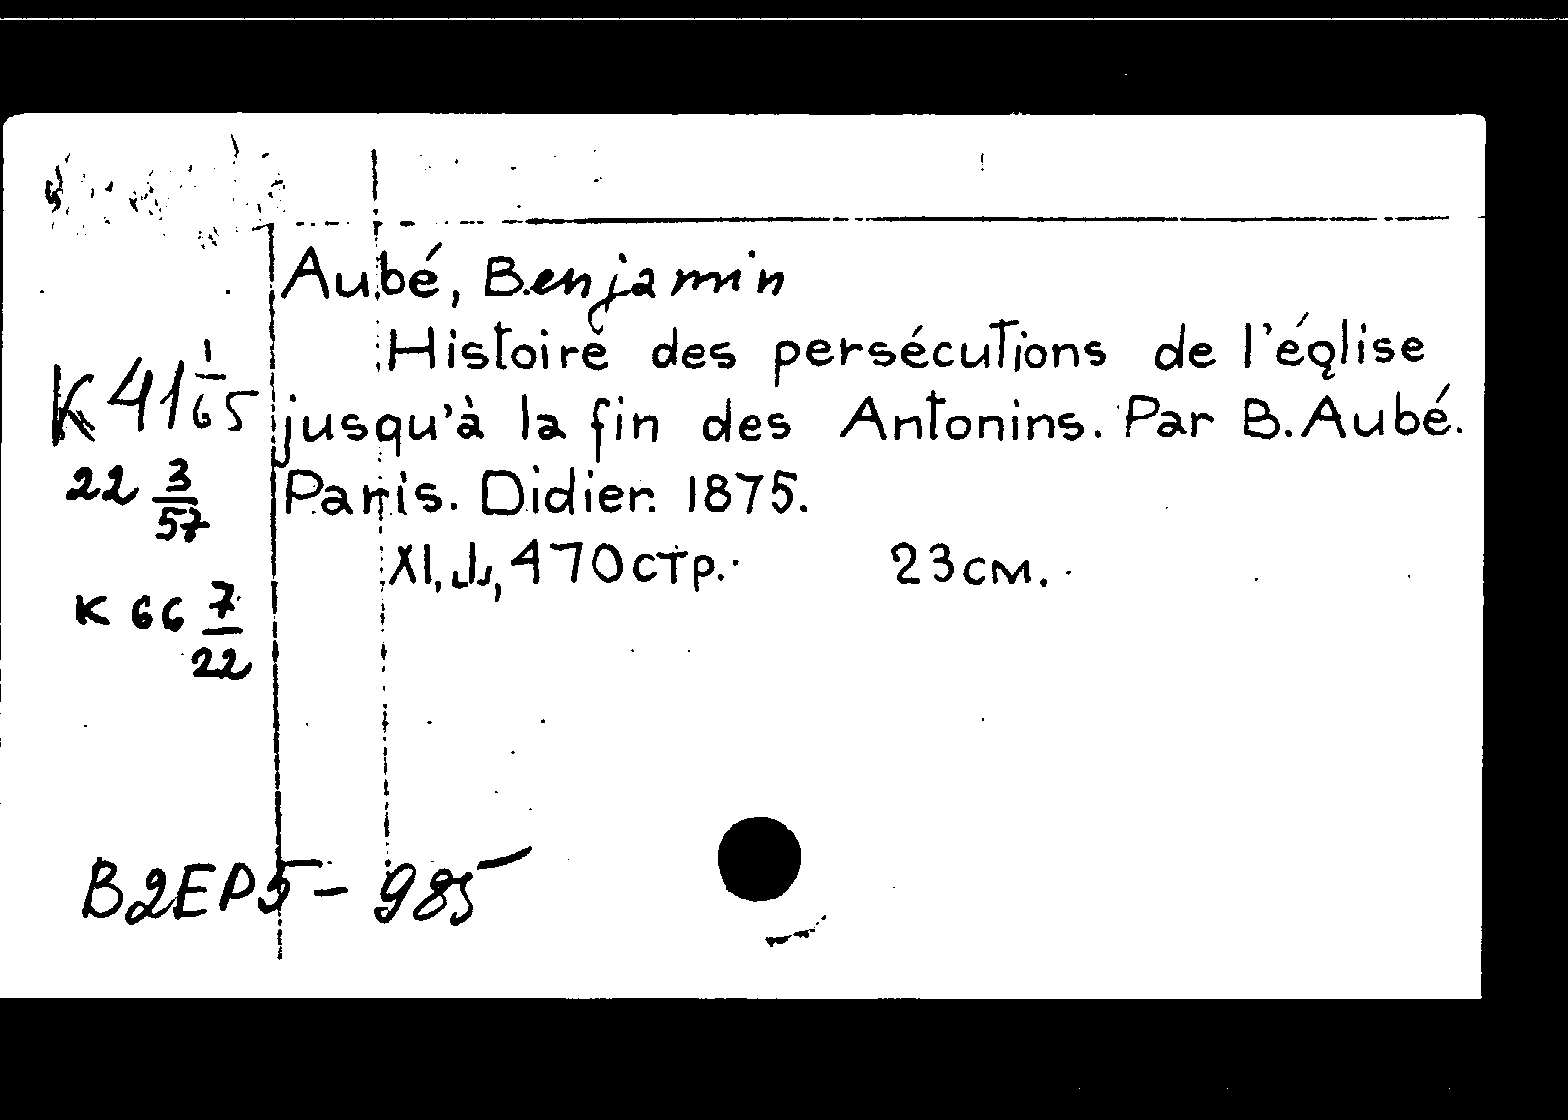 Aubé, Benjamin
Histoire des persécutions de l'église
jusqu'à la fin des Antonins. Par B. Aubé.
Paris. Didier. 1875.
XI, 470 стр. 23 см.
К 41 1/65
22 3/57
к 66 7/22
B2EP5-985